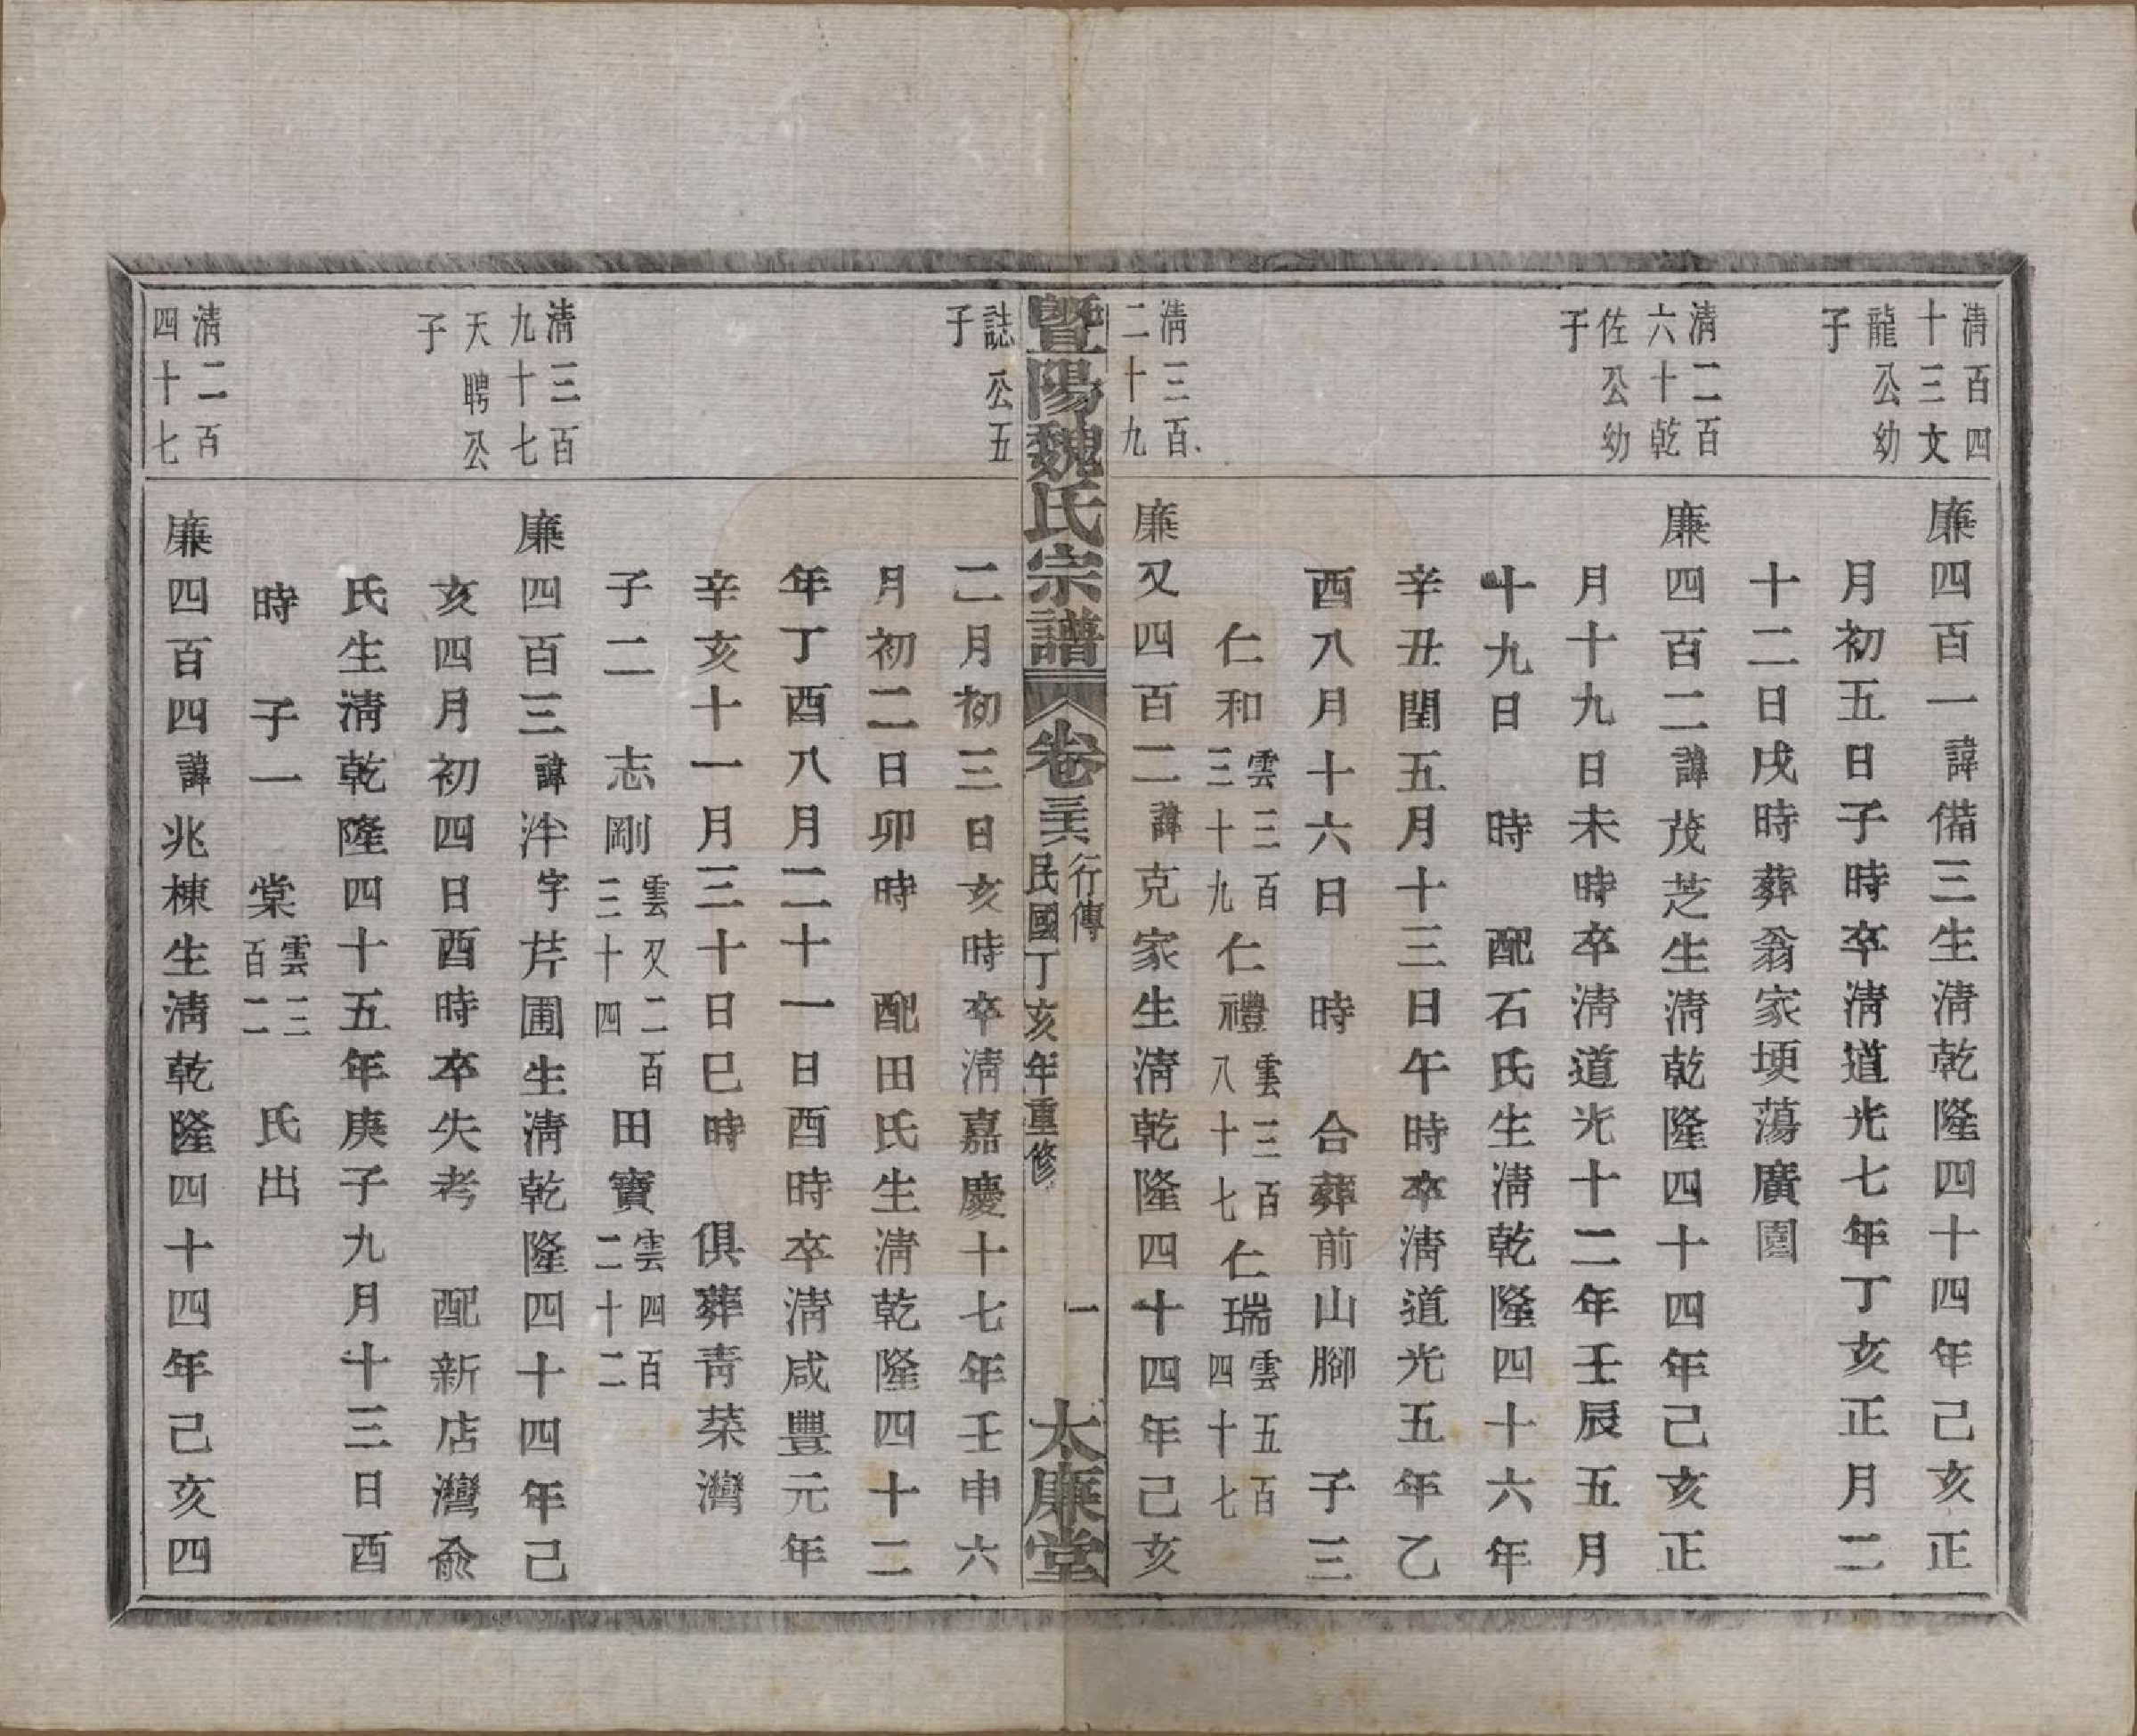 清百四
十三文
龍公幼
子
廉四百一諱備三生清乾隆四十四年己亥正
月初五日子時卒清道光七年丁亥正月二
十二日戌時葬翁家埂蕩廣園
清二百
六十乾
佐公幼
子
廉四百二諱茂芝生清乾隆四十四年己亥正
月十九日未時卒清道光十二年壬辰五月
十九日　時　配石氏生清乾隆四十六年
辛丑閏五月十三日午時卒清道光五年乙
酉八月十六日　時　合葬前山腳　子三
仁和雲三百三十九仁禮雲三百八十七仁瑞雲五百四十七
清三百
二十九
廉又四百二諱克家生清乾隆四十四年己亥
暨陽魏氏宗譜
卷三六
行傳
民國丁亥年重修
一
太廉堂
誌公五
子
二月初三日亥時卒清嘉慶十七年壬申六
月初二日卯時　配田氏生清乾隆四十二
年丁酉八月二十一日酉時卒清咸豐元年
辛亥十一月三十日巳時　俱葬靑菜灣
子二　志剛雲又二百三十四田寶雲四百二十二
清三百
九十七
天聘公
子
廉四百三諱泮字芹圃生清乾隆四十四年己
亥四月初四日酉時卒失考　配新店灣兪
氏生清乾隆四十五年庚子九月十三日酉
時　子一　棠雲三百二　氏出
清二百
四十七
廉四百四諱兆棟生清乾隆四十四年己亥四